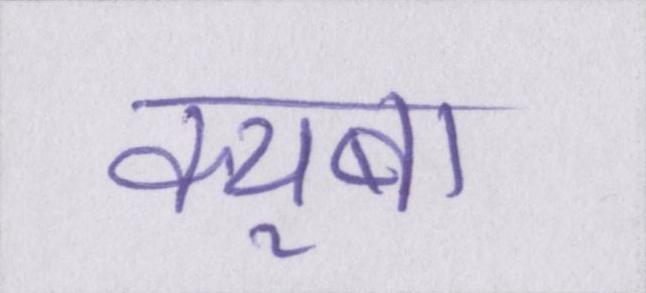 क्यूबा